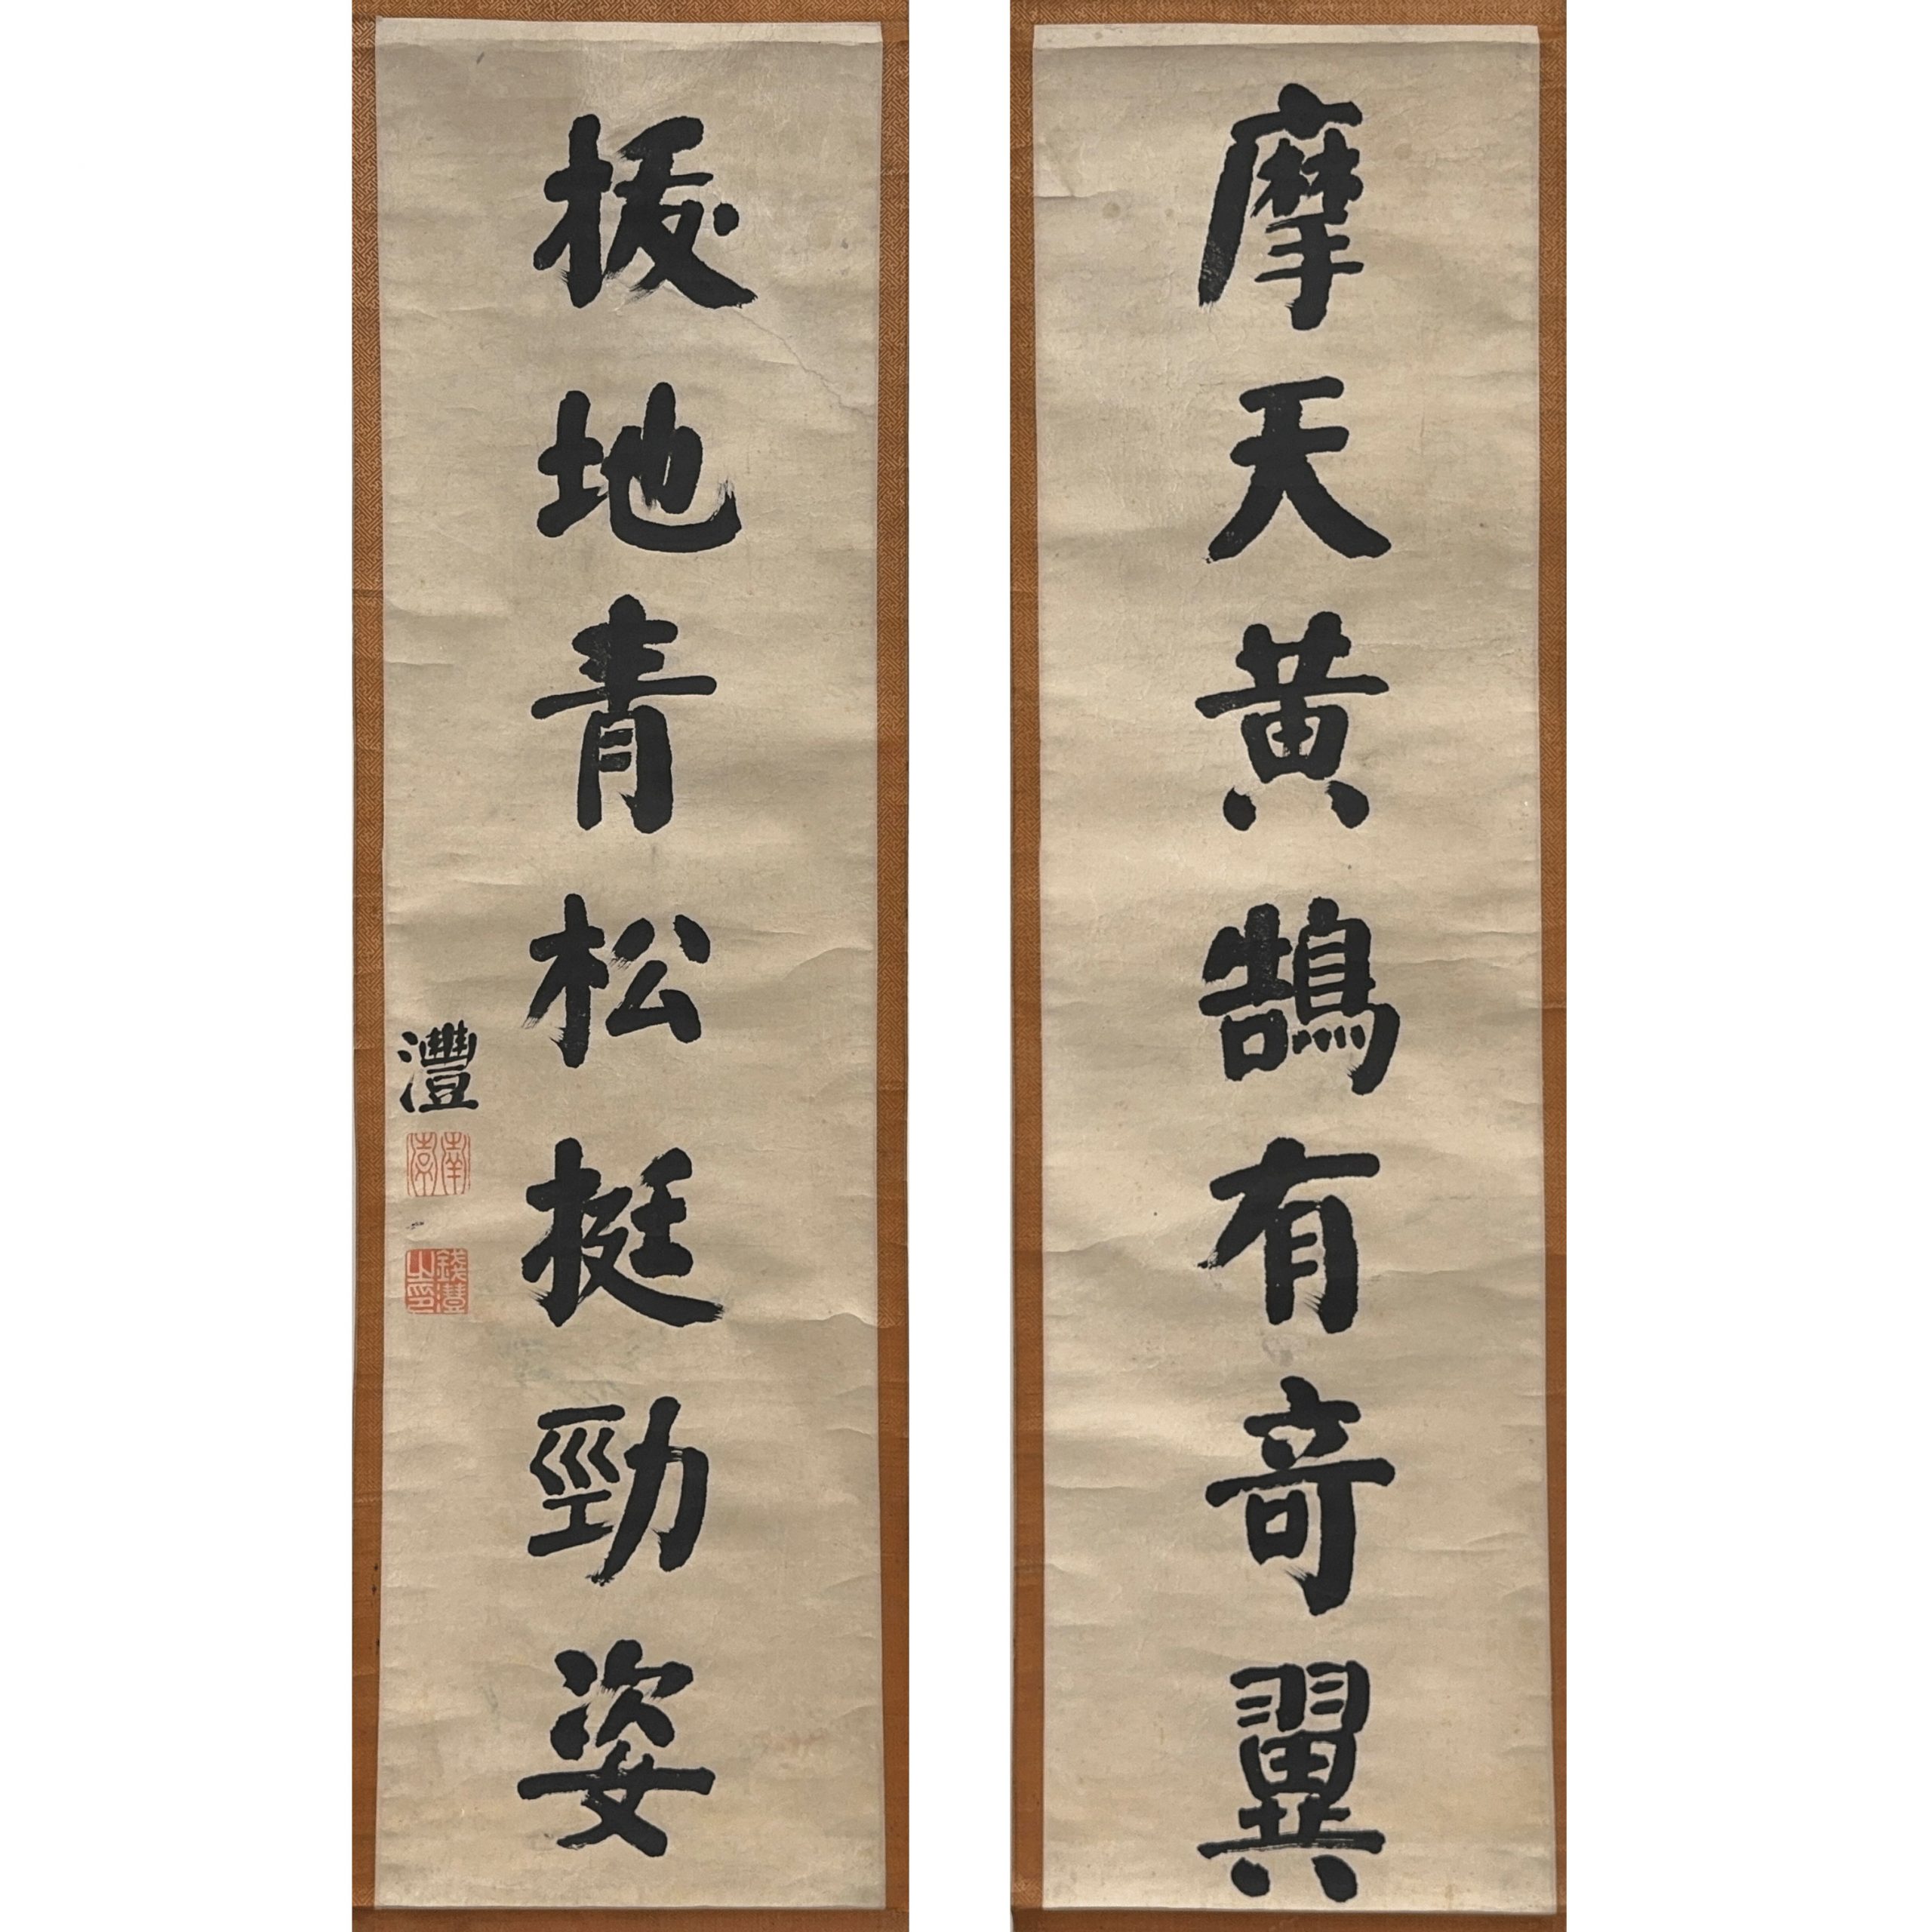 摩天黄鵠有奇翼
拔地青松挺勁姿
灃
南園
錢灃之印